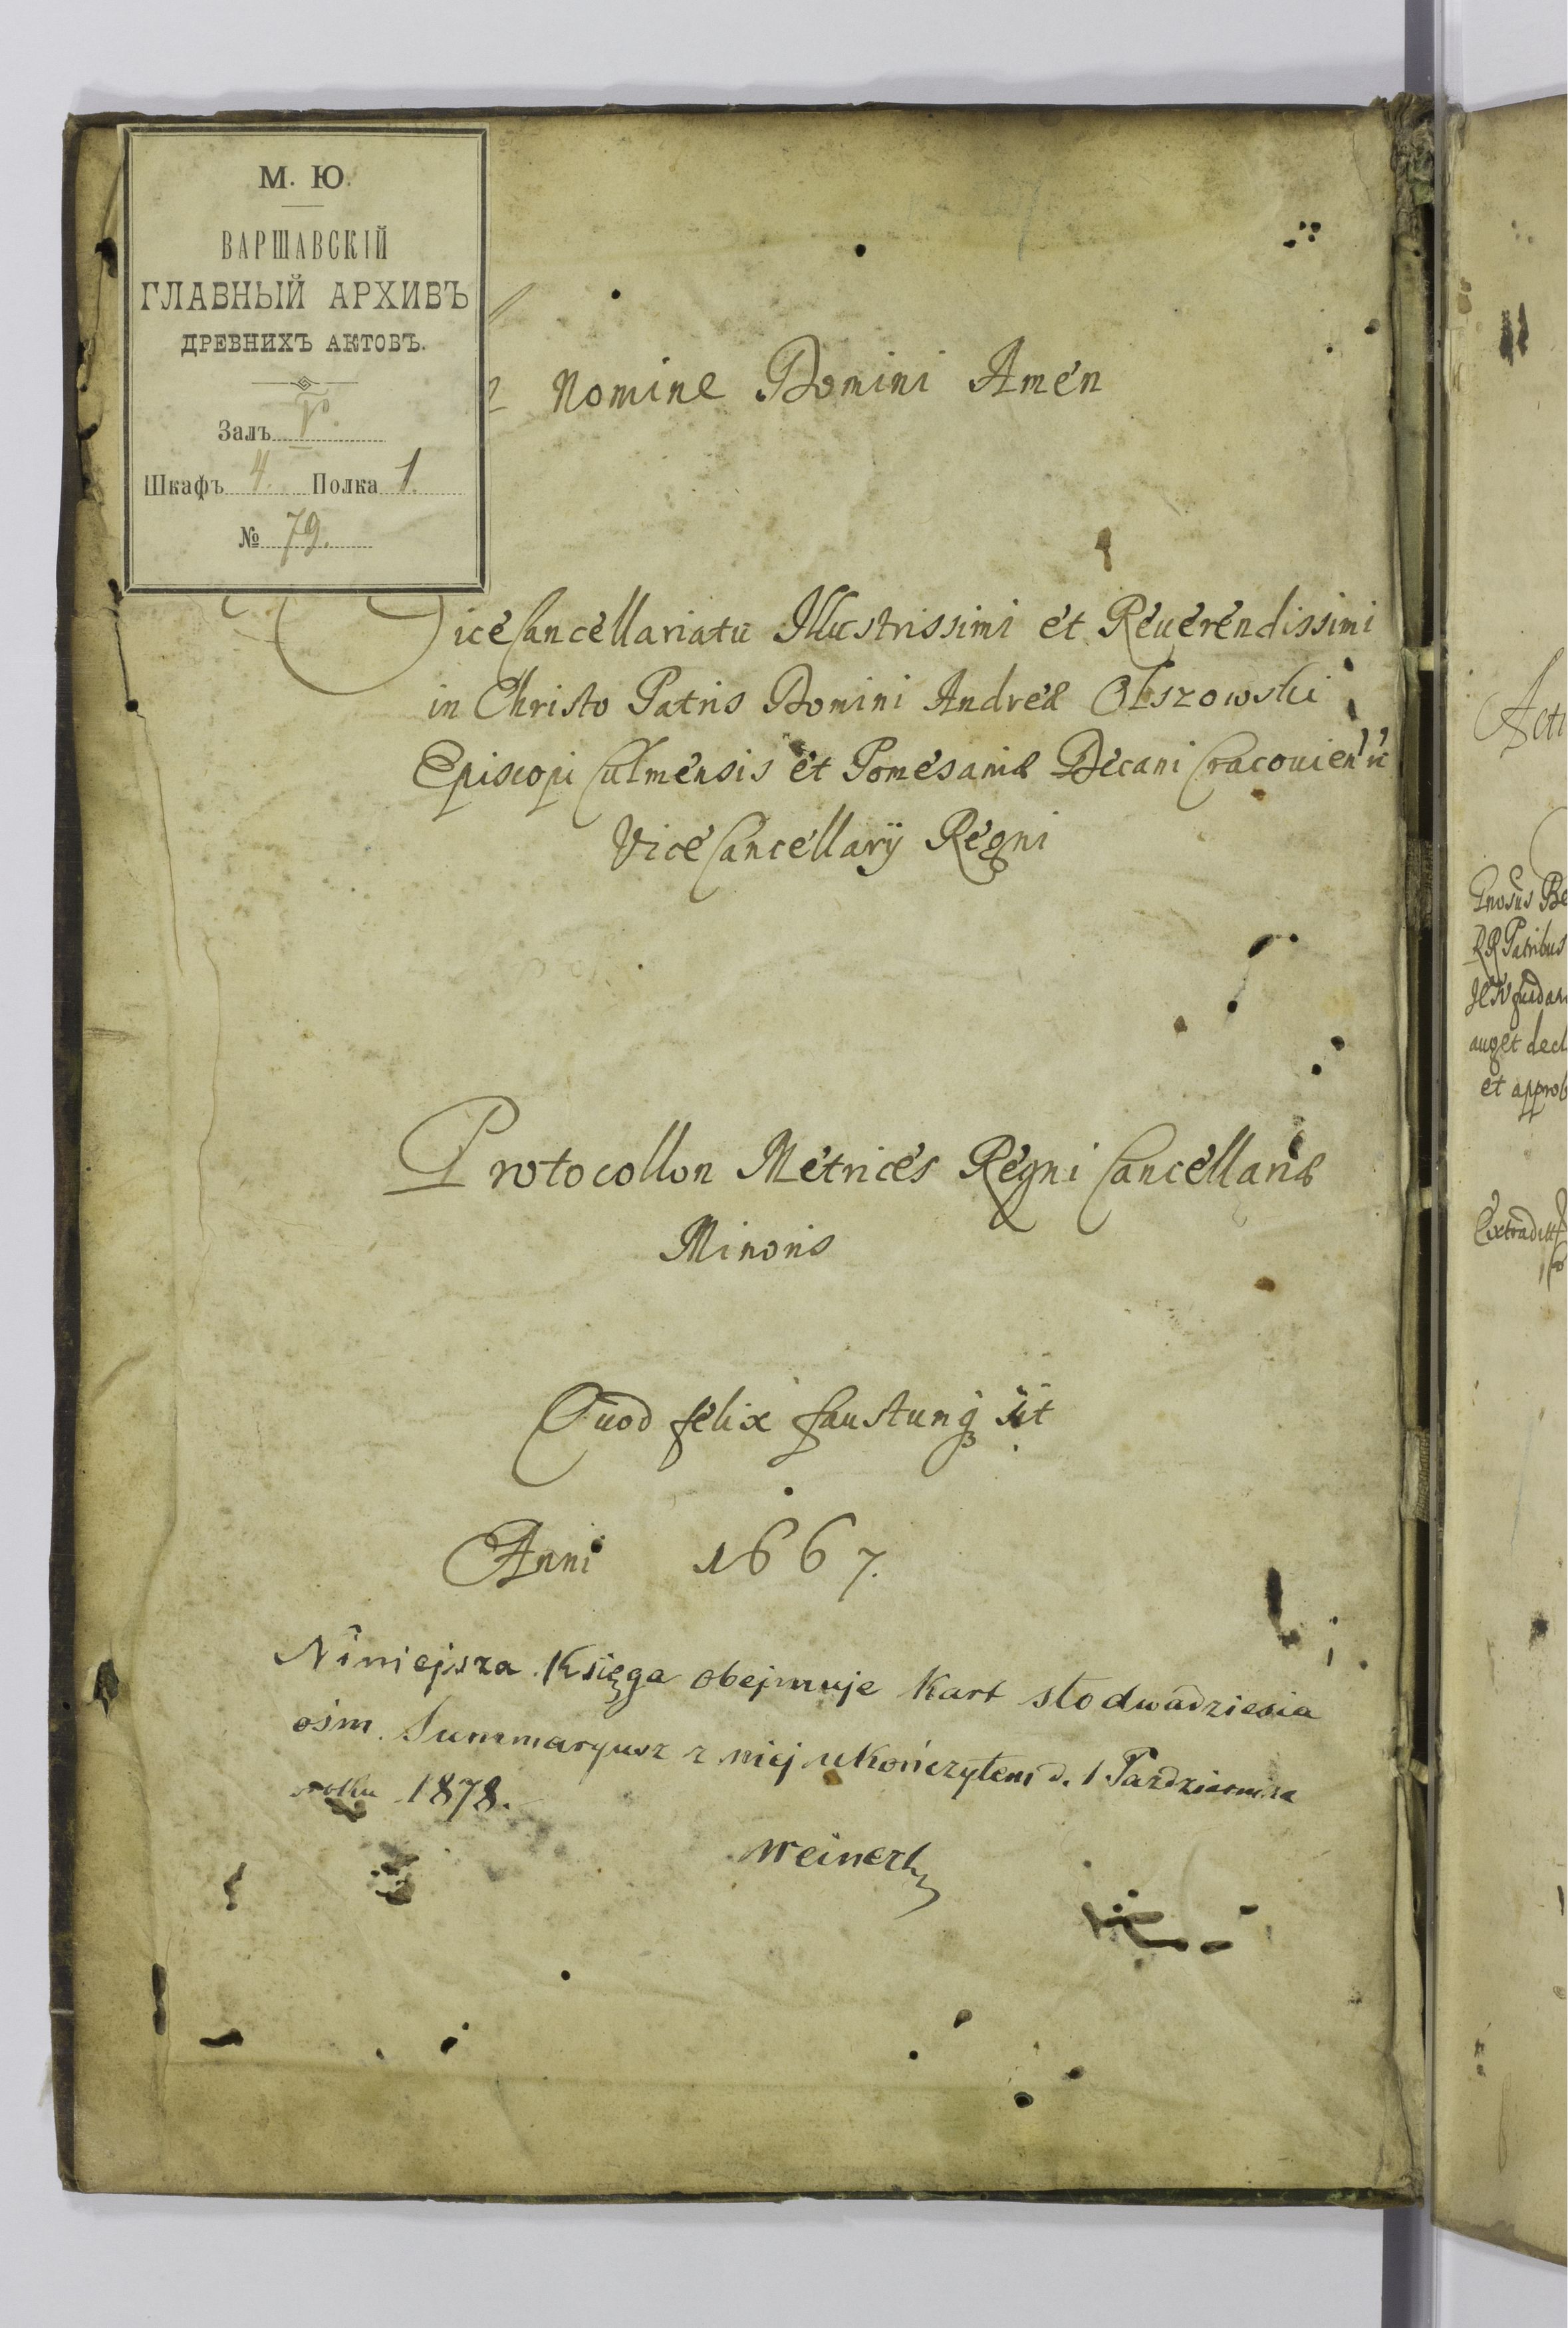 М. Ю.
ВАРШАВСКІЙ
ГЛАВНЫЙ АРХИВЪ
ДРЕВНИХЪ АКТОВЪ.
Залъ V.
Шкафъ 4. Полка 1.
№ 79.
Nomine Domini Amen
ViceCancellariatu Illustrissimi et Reuerendissimi
in Christo Patris Domini Andreæ Olszowski
Episcopi Culmensis et Pomesaniæ Decani Cracouien
ViceCancellarÿ Regni
Protocollon Metrices Regni Cancellariæ
Minoris
Quod felix faustunq sit
Anni 1667.
Niniejsza Księga obejmuje Kart stodwadzieścia
ośm. Summaryusz z niej ukończyłem d. 1 Pazdziernika
roku 1878.
Weinert
Acti
RR Patribus
auget decl
et approb